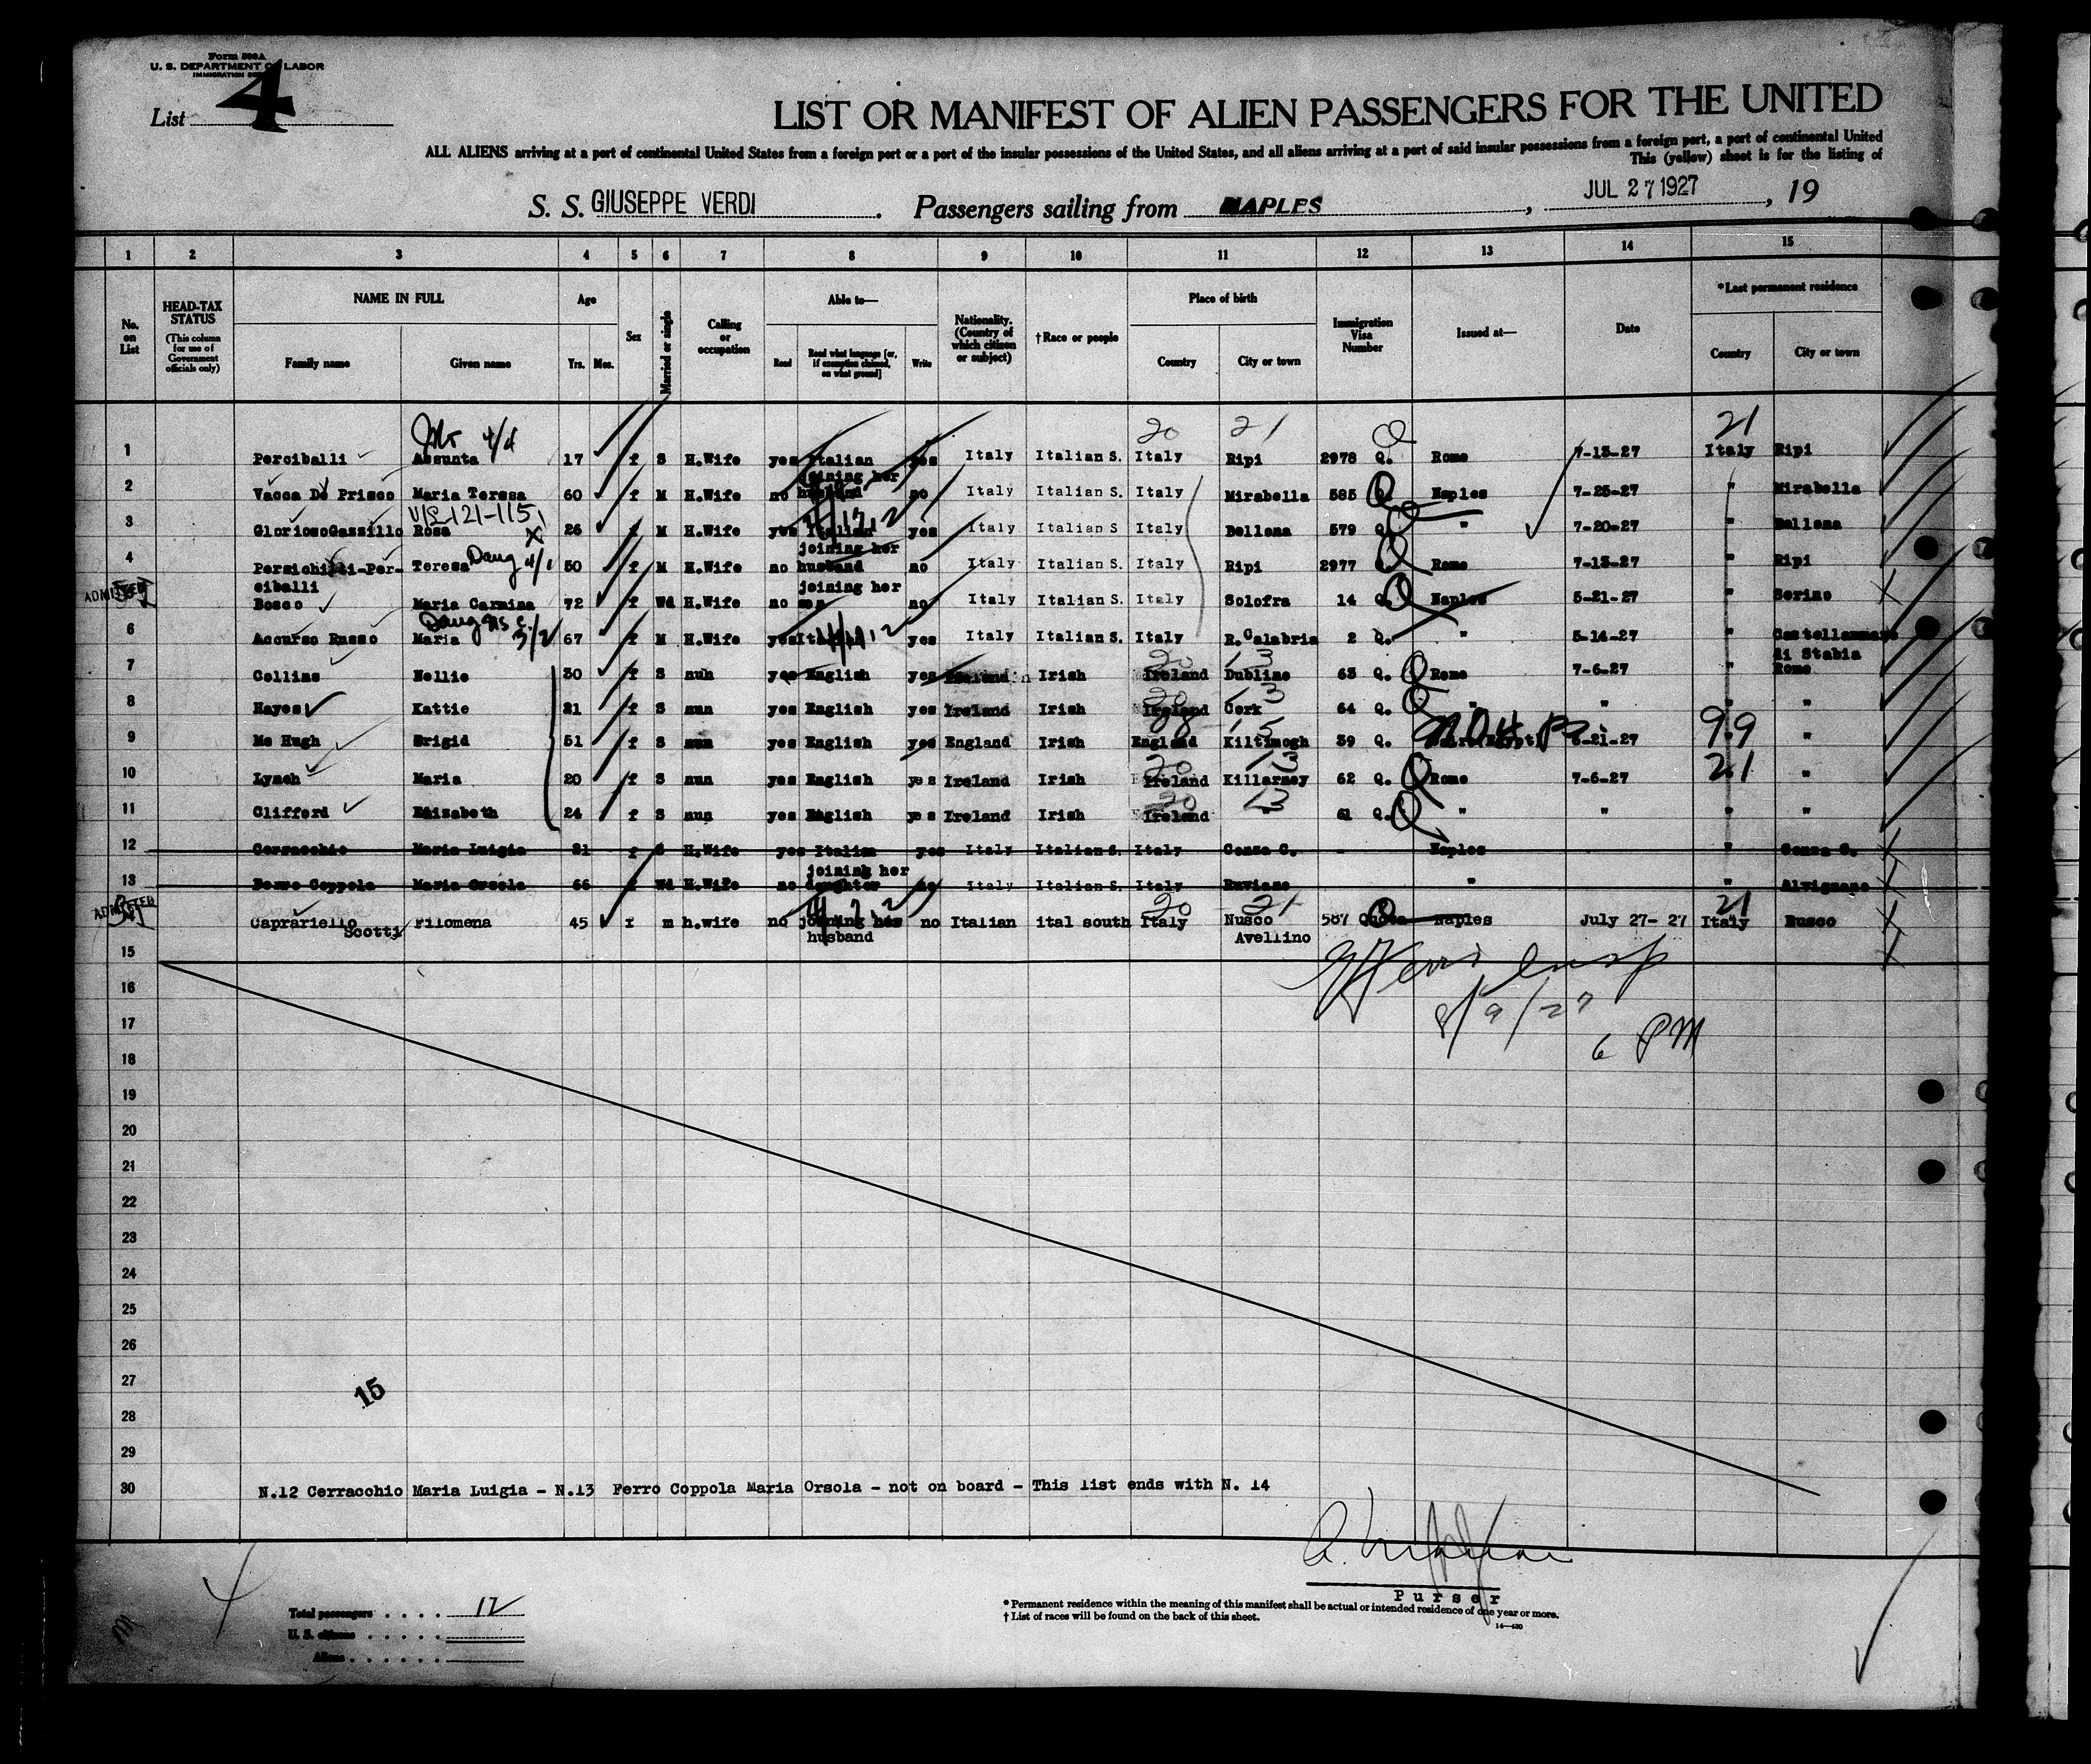 Form 500A
U. S. DEPARTMENT OF LABOR
List 4
LIST OR MANIFEST OF ALIEN PASSENGERS FOR THE UNITED
ALL ALIENS arriving at a port of continental United States from a foreign port or a port of the insular possessions of the United States, and all aliens arriving at a port of said insular possessions from a foreign port, a port of continental United
This (yellow) sheet is for the listing of
S. S. GIUSEPPE VERDI . Passengers sailing from NAPLES , JUL 27 1927 , 19
1 2 3 4 5 6 7 8 9 10 11 12 13 14 15
No. on List
HEAD-TAX STATUS
(This column for use of Government officials only)
NAME IN FULL
Family name Given name
Age
Yrs. Mos.
Sex
Married or single
Calling or occupation
Able to—
Read Read what language [or, if exemption claimed, on what ground] Write
Nationality. (Country of which citizen or subject)
†Race or people
Place of birth
Country City or town
Immigration Visa Number
Issued at—
Date
*Last permanent residence
Country City or town
4/4 20 21 21
1 Perciballi Assunta 17 f S H.Wife yes Italian yes Italy Italian S. Italy Ripi 2978 Q. Rome 7-13-27 Italy Ripi
joining her
2 Vacca De Prisco Maria Teresa 60 f M H.Wife no husband no Italy Italian S. Italy Mirabella 585 Q. Naples 7-25-27 " Mirabella
121-115
3 GloriosoGazzillo Rosa 26 f M H.Wife yes Italian yes Italy Italian S Italy Bellona 579 Q. " 7-20-27 " Bellona
joining her
4 Teresa Daug 4/1 50 f M H.Wife no husband no Italy Italian S. Italy Ripi 2977 Rome 7-13-27 " Ripi
ciballi joining her
ADMITTED Bosco Maria Carmina 72 f Wd H.Wife no son no Italy Italian S. Italy Solofra 14 Q. Naples 5-21-27 " Serino
6 Accurso Russo Maria 3/2 67 f M H.Wife yes yes Italy Italian S. Italy R.Calabria 2 Q. " 5-14-27 " Castellammare
di Stabia
20 13
7 Collins Nellie 30 f S nun yes English yes Irish Ireland Dubline 63 Q. Rome 7-6-27 " Rome
20 3
8 Hayes Kattie 21 f S nun yes English yes Ireland Irish Ireland Cork 64 Q. " " " "
9 Mc Hugh Brigid 51 f S nun yes English yes England Irish England Kiltimogh 39 Q. 99 "
20 13 21
10 Lynch Maria 20 f S nun yes English yes Ireland Irish Ireland Killarney 62 Q. Rome 7-6-27 "
20 13
11 Clifford Elizabeth 24 f S nun yes English yes Ireland Irish Ireland " 61 Q. " " " "
12 Cerracchio Maria Luigia 21 f S H.Wife yes Italian yes Italy Italian S. Italy Conza C. - Naples " Conza C.
joining her
13 Ferro Coppola Maria Orsola 66 f Wd H.Wife no daughter no Italy Italian S. Italy Ruviano " " Alvignano
ADMITTED 20 21 21
Caprariello Filomena 45 f m h.wife no joining her no Italian ital south Italy Nusco 587 Quota Naples July 27- 27 Italy Nusco
Scotti husband Avellino
15
16 Insp
17 8/9/27
18 6 PM
19
20
21
22
23
24
25
26
27
15
28
29
30 N.12 Cerracchio Maria Luigia - N.13 Ferro Coppola Maria Orsola - not on board - This list ends with N. 14
Purser
Total passengers . . . . 12
U. S. citizens . . . . .
Aliens . . . . . .
* Permanent residence within the meaning of this manifest shall be actual or intended residence of one year or more.
† List of races will be found on the back of this sheet.